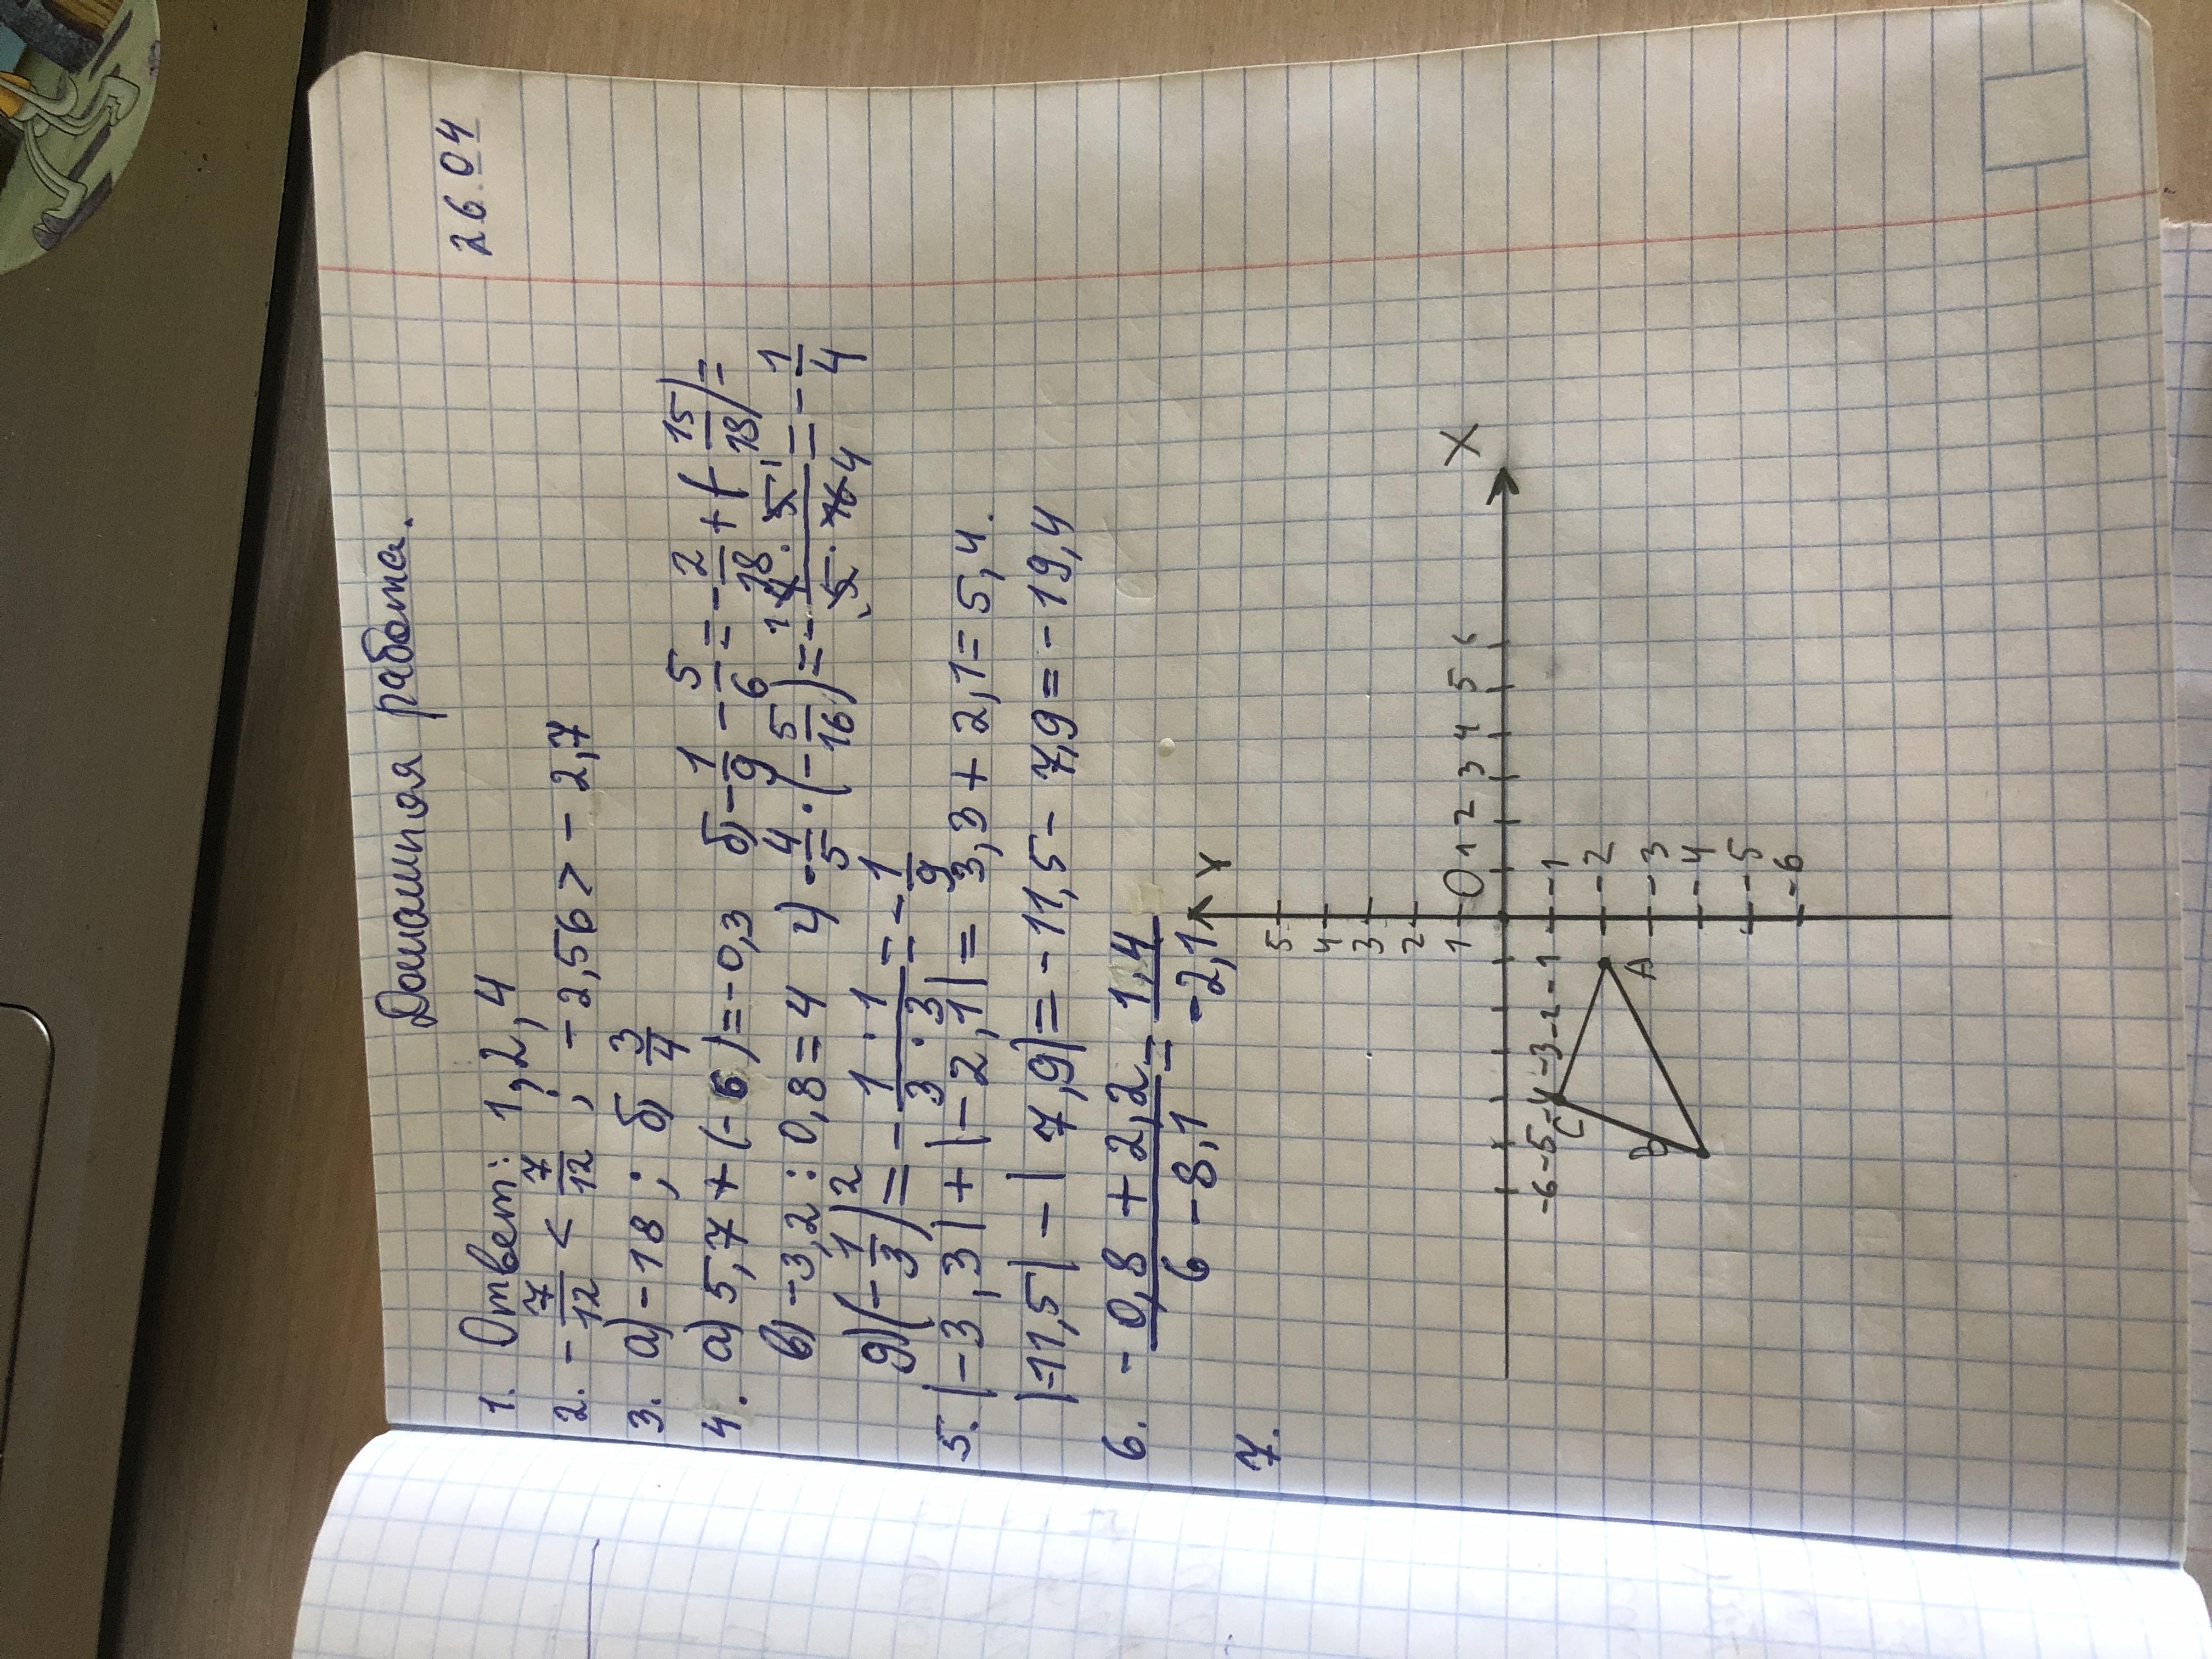 26.04
Домашняя работа.
1. Ответ: 1, 2, 4
2. -7/12 < 7/12 ; -2,56 > -2,7
3. а) -18 ; б) 3/4
4. а) 5,7 + (-6) = -0,3 б) -1/9 - 5/6 = -2/18 + (-15/18) =
в) -3,2 : 0,8 = 4 г) -4/5 · (-5/16) = - 4 · 5 / 5 · 16 = -1/4
д) (-1/3)² = - 1 · 1 / 3 · 3 = -1/9
5. |-3,3| + |-2,1| = 3,3 + 2,1 = 5,4.
|-11,5| - |7,9| = -11,5 - 7,9 = -19,4
6. -0,8 + 2,2 / 6 - 8,1 = 1,4 / -2,1
7.
Y
5
4
3
2
1
0 1 2 3 4 5 6 X
-6 -5 -4 -3 -2 -1
-1
-2
-3
-4
-5
-6
C
A
B